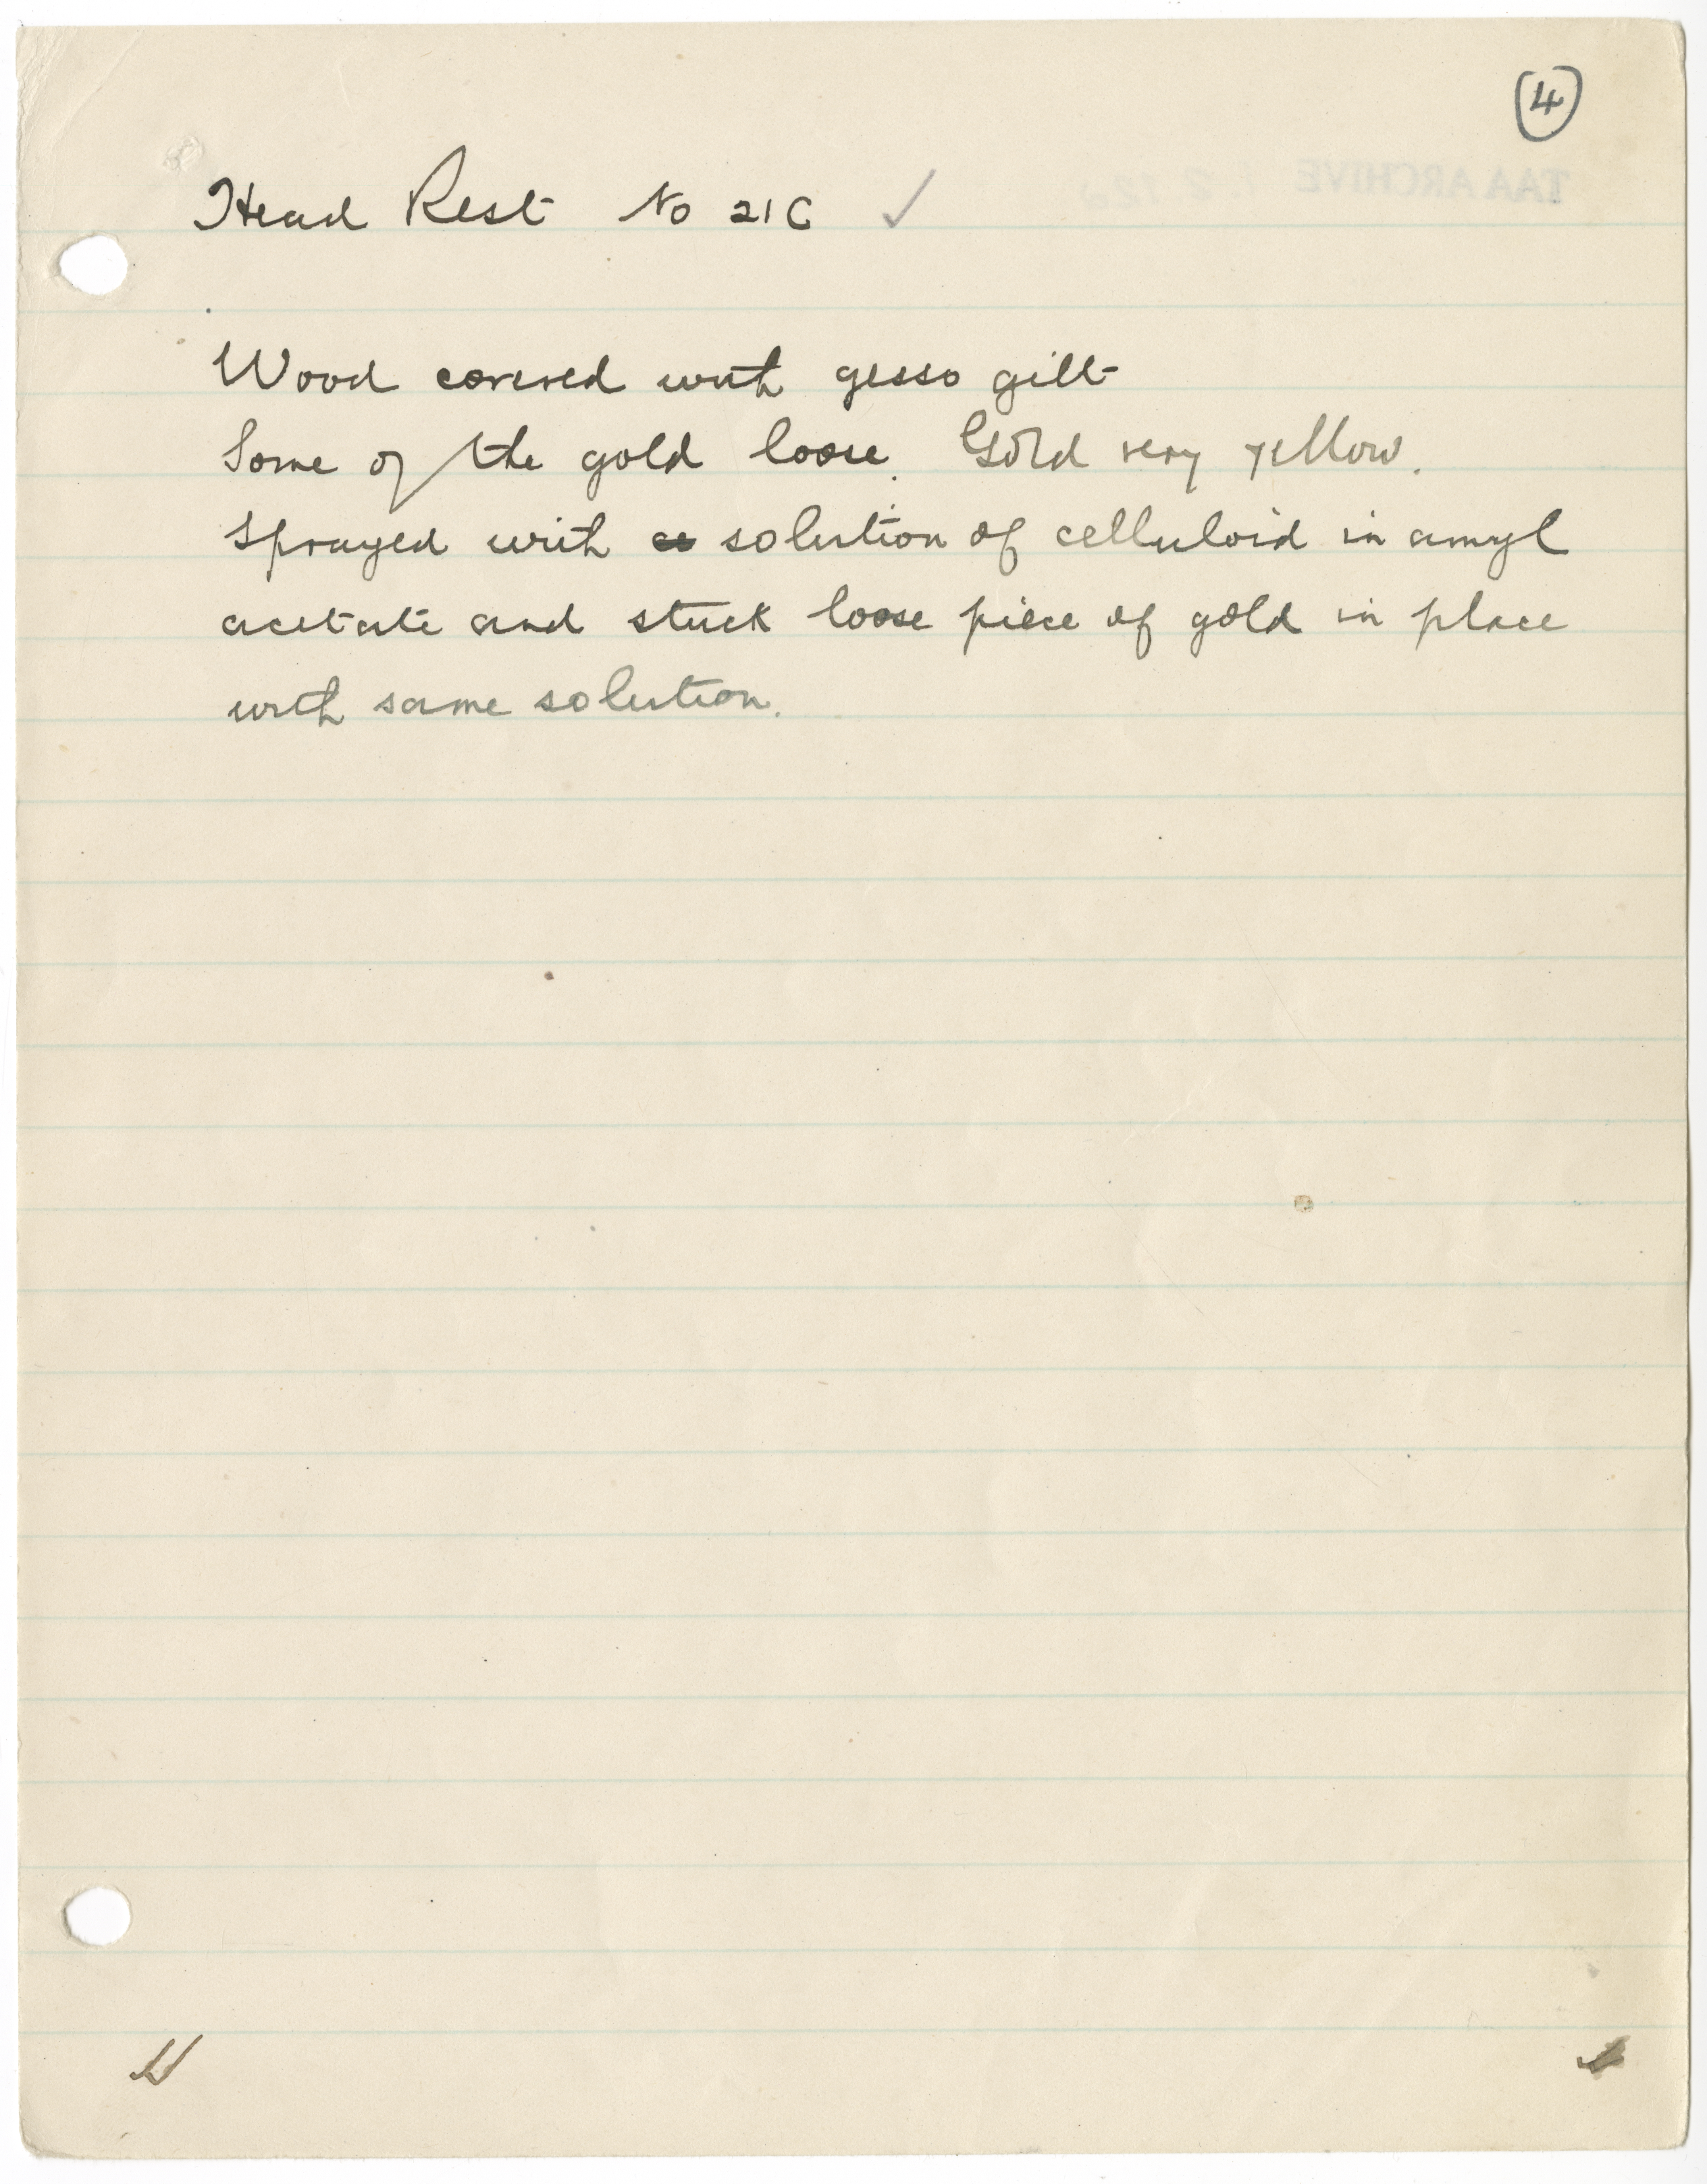 4
Head Rest No 21C
Wood covered with gesso gilt
Some of the gold loose. Gold very yellow.
Sprayed with solution of celluloid in amyl
acetate and stuck loose piece of gold in place
with same solution.
TAA ARCHIVE